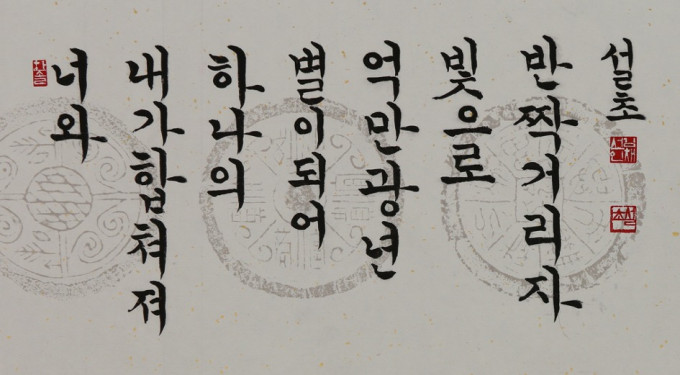 너와
내가합쳐져
하나의
별이되어
억만광년
빛으로
반짝거리자
설초